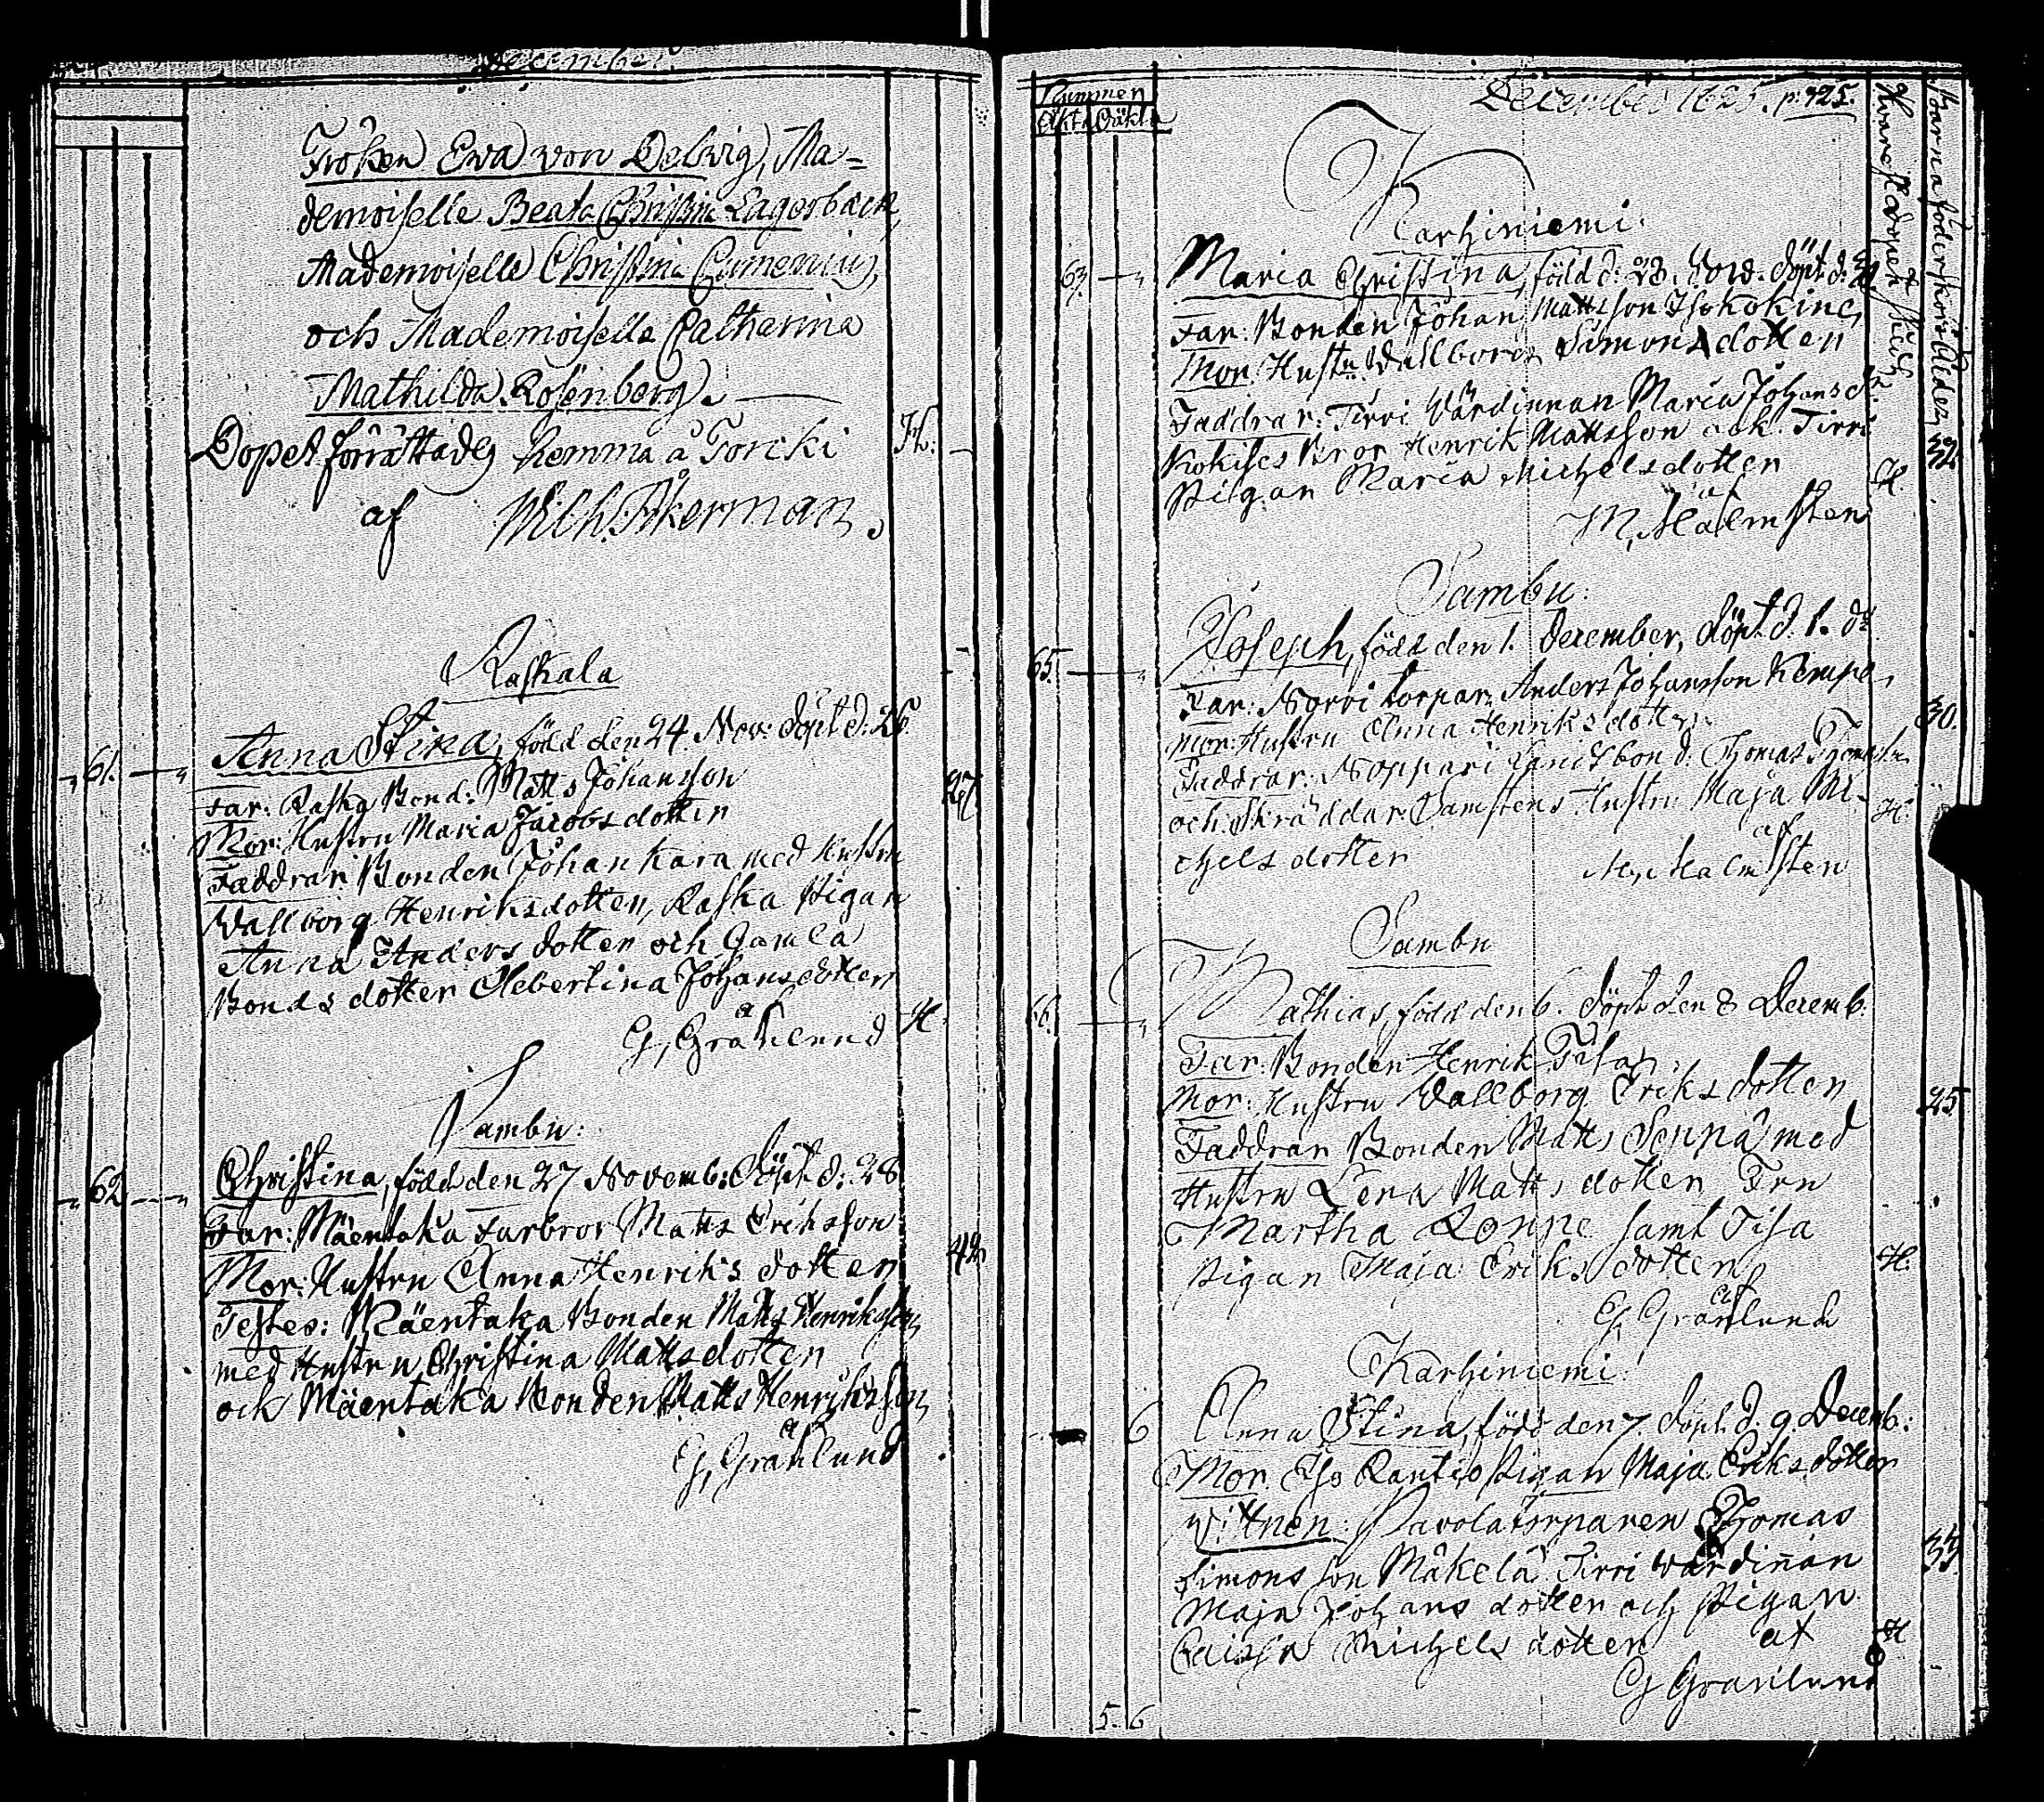 December.
Fröken Ewa von Delwig, Ma=
demoiselle Beata Christina Lagerbäck,
Mademoiselle Christina Cumenius,
och Mademoiselle Catharina
Mathilda Rosenberg.
Dopet förrättades hemma å Torcki
af Wilh. Åkerman.
H.
Raskala
61.
Anna Stina, född den 24. Nov: döpt d: 26.
Far: Raska Bond: Matts Johansson
27
Mor: Hustru Maria Jacobsdotter
Faddrar: Bonden Johan Kara med hustru
Wallborg Henriksdotter, Raska Pigan
Anna Andersdotter och Gamla
Bonds dotter Albertina Johansdotter
af H.
G, Granlund
Sambu:
62
Christina, född den 27 Novemb: döpt d: 28
Far: Mäentaka Farbror Matts Eriksson
42
Mor: Hustru Anna Henriks dotter
Testes: Mäentaka Bonden Matts Henriksson
med Hustru Christina Mattsdotter
ock Mäentaka Bonden Matts Henriksson
af
G, Granlund
Nummer
Äkta Oäkta
December 1825. p. 425.
Hvarest Dopet skedt
Barnaföderskors Ålder
Karhiniemi.
63.
Maria Christina, född d: 28. Nov. döpt d:
Far: Bonden Johan Mattsson Isokokine,
Mor: Hustru Wallborg Simonsdotter
32
Faddrar: Tirri Wärdinnan Maria Johansdr.
Kokises Bror Henrik Mattsson ock Tirri
Pigan Maria Michelsdotter
H
af
M, Malmsten
Sambu:
65.
Joseph, född den 1. December, döpt d. 1. do
Far: Norri torpar. Anders Johansson Kempe,
30.
Mor: Hustru Anna Henriksdotter
Faddrar: Noppari Landbond: Thomas Thomass:
och Skräddar Damstens Hustru Maja Mi-
chelsdotter
H.
af
M, Malmsten
Sambu
66.
Mathias, född den 6. döpt den 8 Decemb.
Far: Bonden Henrik Tisa,
Mor: Hustru Wallborg Eriksdotter
25
Faddrar Bonden Matts Seppä med
Hustru Lena Matts dotter, Enk
Martha Ronne samt Tisa
Pigan Maja Eriks dotter
H.
af
G, Granlund
Karhiniemi.
6
Anna Stina, född den 7. döpt d. 9. Decemb:
Mor. Iso Rantio Pigan Maja Eriksdotter
Wittnen: Pavolatorparen Thomas
33
Simons son Mäkelä Tirri wärdinan
Maja Johans dotter och Pigan
Caisa Michels dotter
af H
G Granlund
5. 6